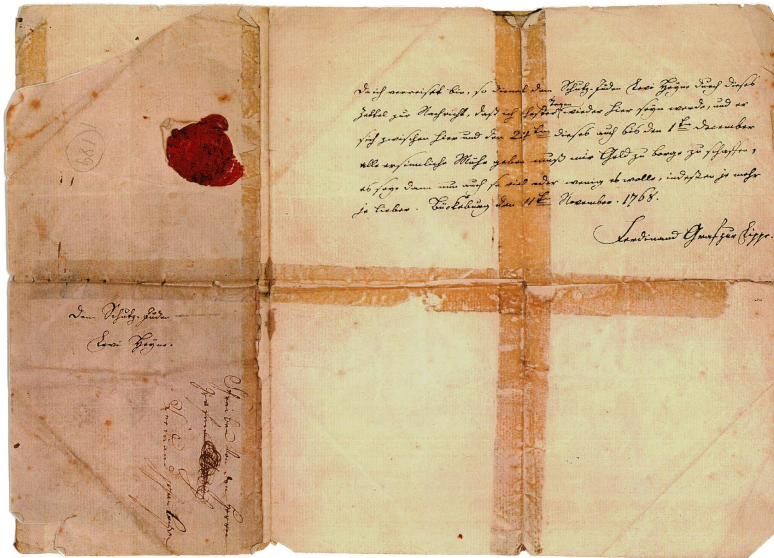 Da ich verreiset bin, so dienet dem Schutz-Juden Levi Heyne durch dieses
Zettel zur Nachricht, daß ich Tagen wieder hier seyn werde, und er
sich zwischen hier und den 24ten dieses auch bis den 1ten December
alle ersinnliche Mühe geben muß mir Geld zu borge zu schaffen,
es seye dann nun auch so viel oder wenig es wolle, indeßen je mehr
je lieber. Bückeburg den 11ten November. 1768.
Ferdinand Graf zur Lippe.
Dem Schutz-Jude
Levi Heyne.
Schreiben von dem Herrn
Ferdinand